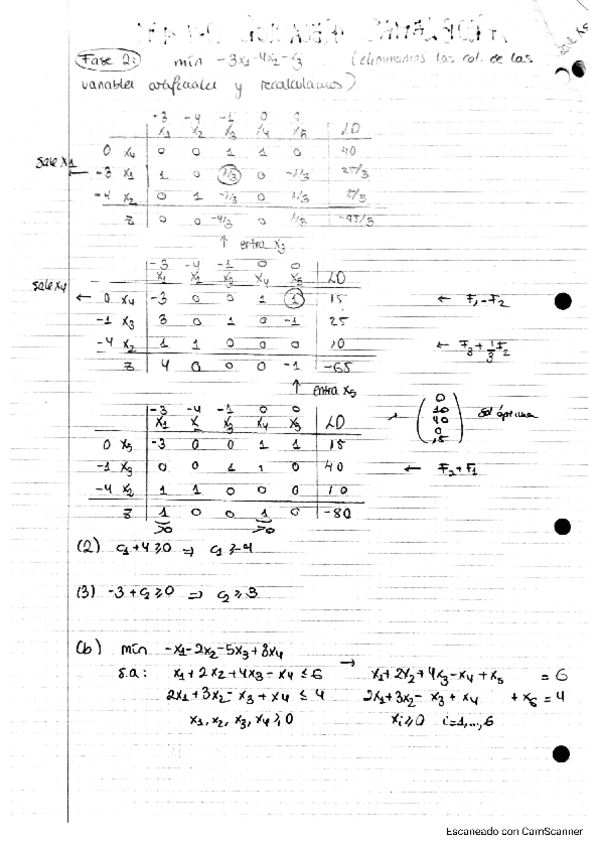 Fase 2: min -3x1-4x2-x3 (eliminamos las col. de las
variables artificiales y recalculamos)
-3 -4 -1 0 0
x1 x2 x3 x4 x5 LD
0 x4 0 0 1 1 0 40
sale x1 ← -3 x1 1 0 1/3 0 -1/3 25/3
-4 x2 0 1 -1/3 0 1/3 5/3
z 0 0 -4/3 0 1/3 -95/3
↑ entra x3
-3 -4 -1 0 0
x1 x2 x3 x4 x5 LD
sale x4 ← 0 x4 -3 0 0 1 1 15 ← F1-F2
-1 x3 3 0 1 0 -1 25
-4 x2 1 1 0 0 0 10 ← F3+1/3F2
z 4 0 0 0 -1 -65
↑ entra x5
-3 -4 -1 0 0
x1 x x3 x4 x5 LD
0 x5 -3 0 0 1 1 15
-1 x3 0 0 1 1 0 40 ← F2+F1
-4 x2 1 1 0 0 0 10
z 1 0 0 1 0 -80
>0 >0
(0 10 40 0 15) sol óptima
(2) c1+4≥0 ⇒ c1≥-4
(3) -3+c2≥0 ⇒ c2≥3
(b) min -x1-2x2-5x3+8x4
s.a: x1+2x2+4x3-x4≤6 → x1+2x2+4x3-x4+x5 =6
2x1+3x2-x3+x4≤4 2x1+3x2-x3+x4 +x6=4
x1,x2,x3,x4≥0 xi≥0 i=1,...,6
Escaneado con CamScanner